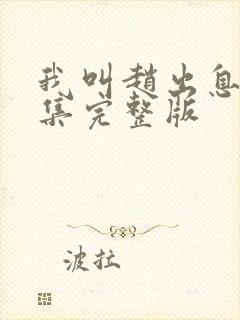 我叫趙出息
集完整版
波拉